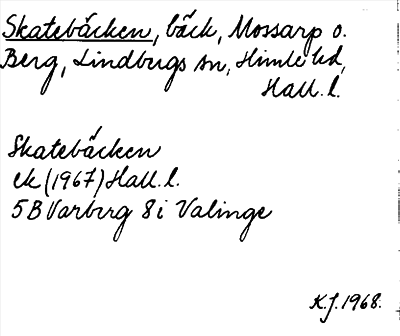 Skatebäcken, bäck, Mossarp o.
Berg, Lindbergs sn, Himle hd,
Hall. l.
Skatebäcken
ek (1967) Hall. l.
5B Varberg 8i Valinge
K.J. 1968.